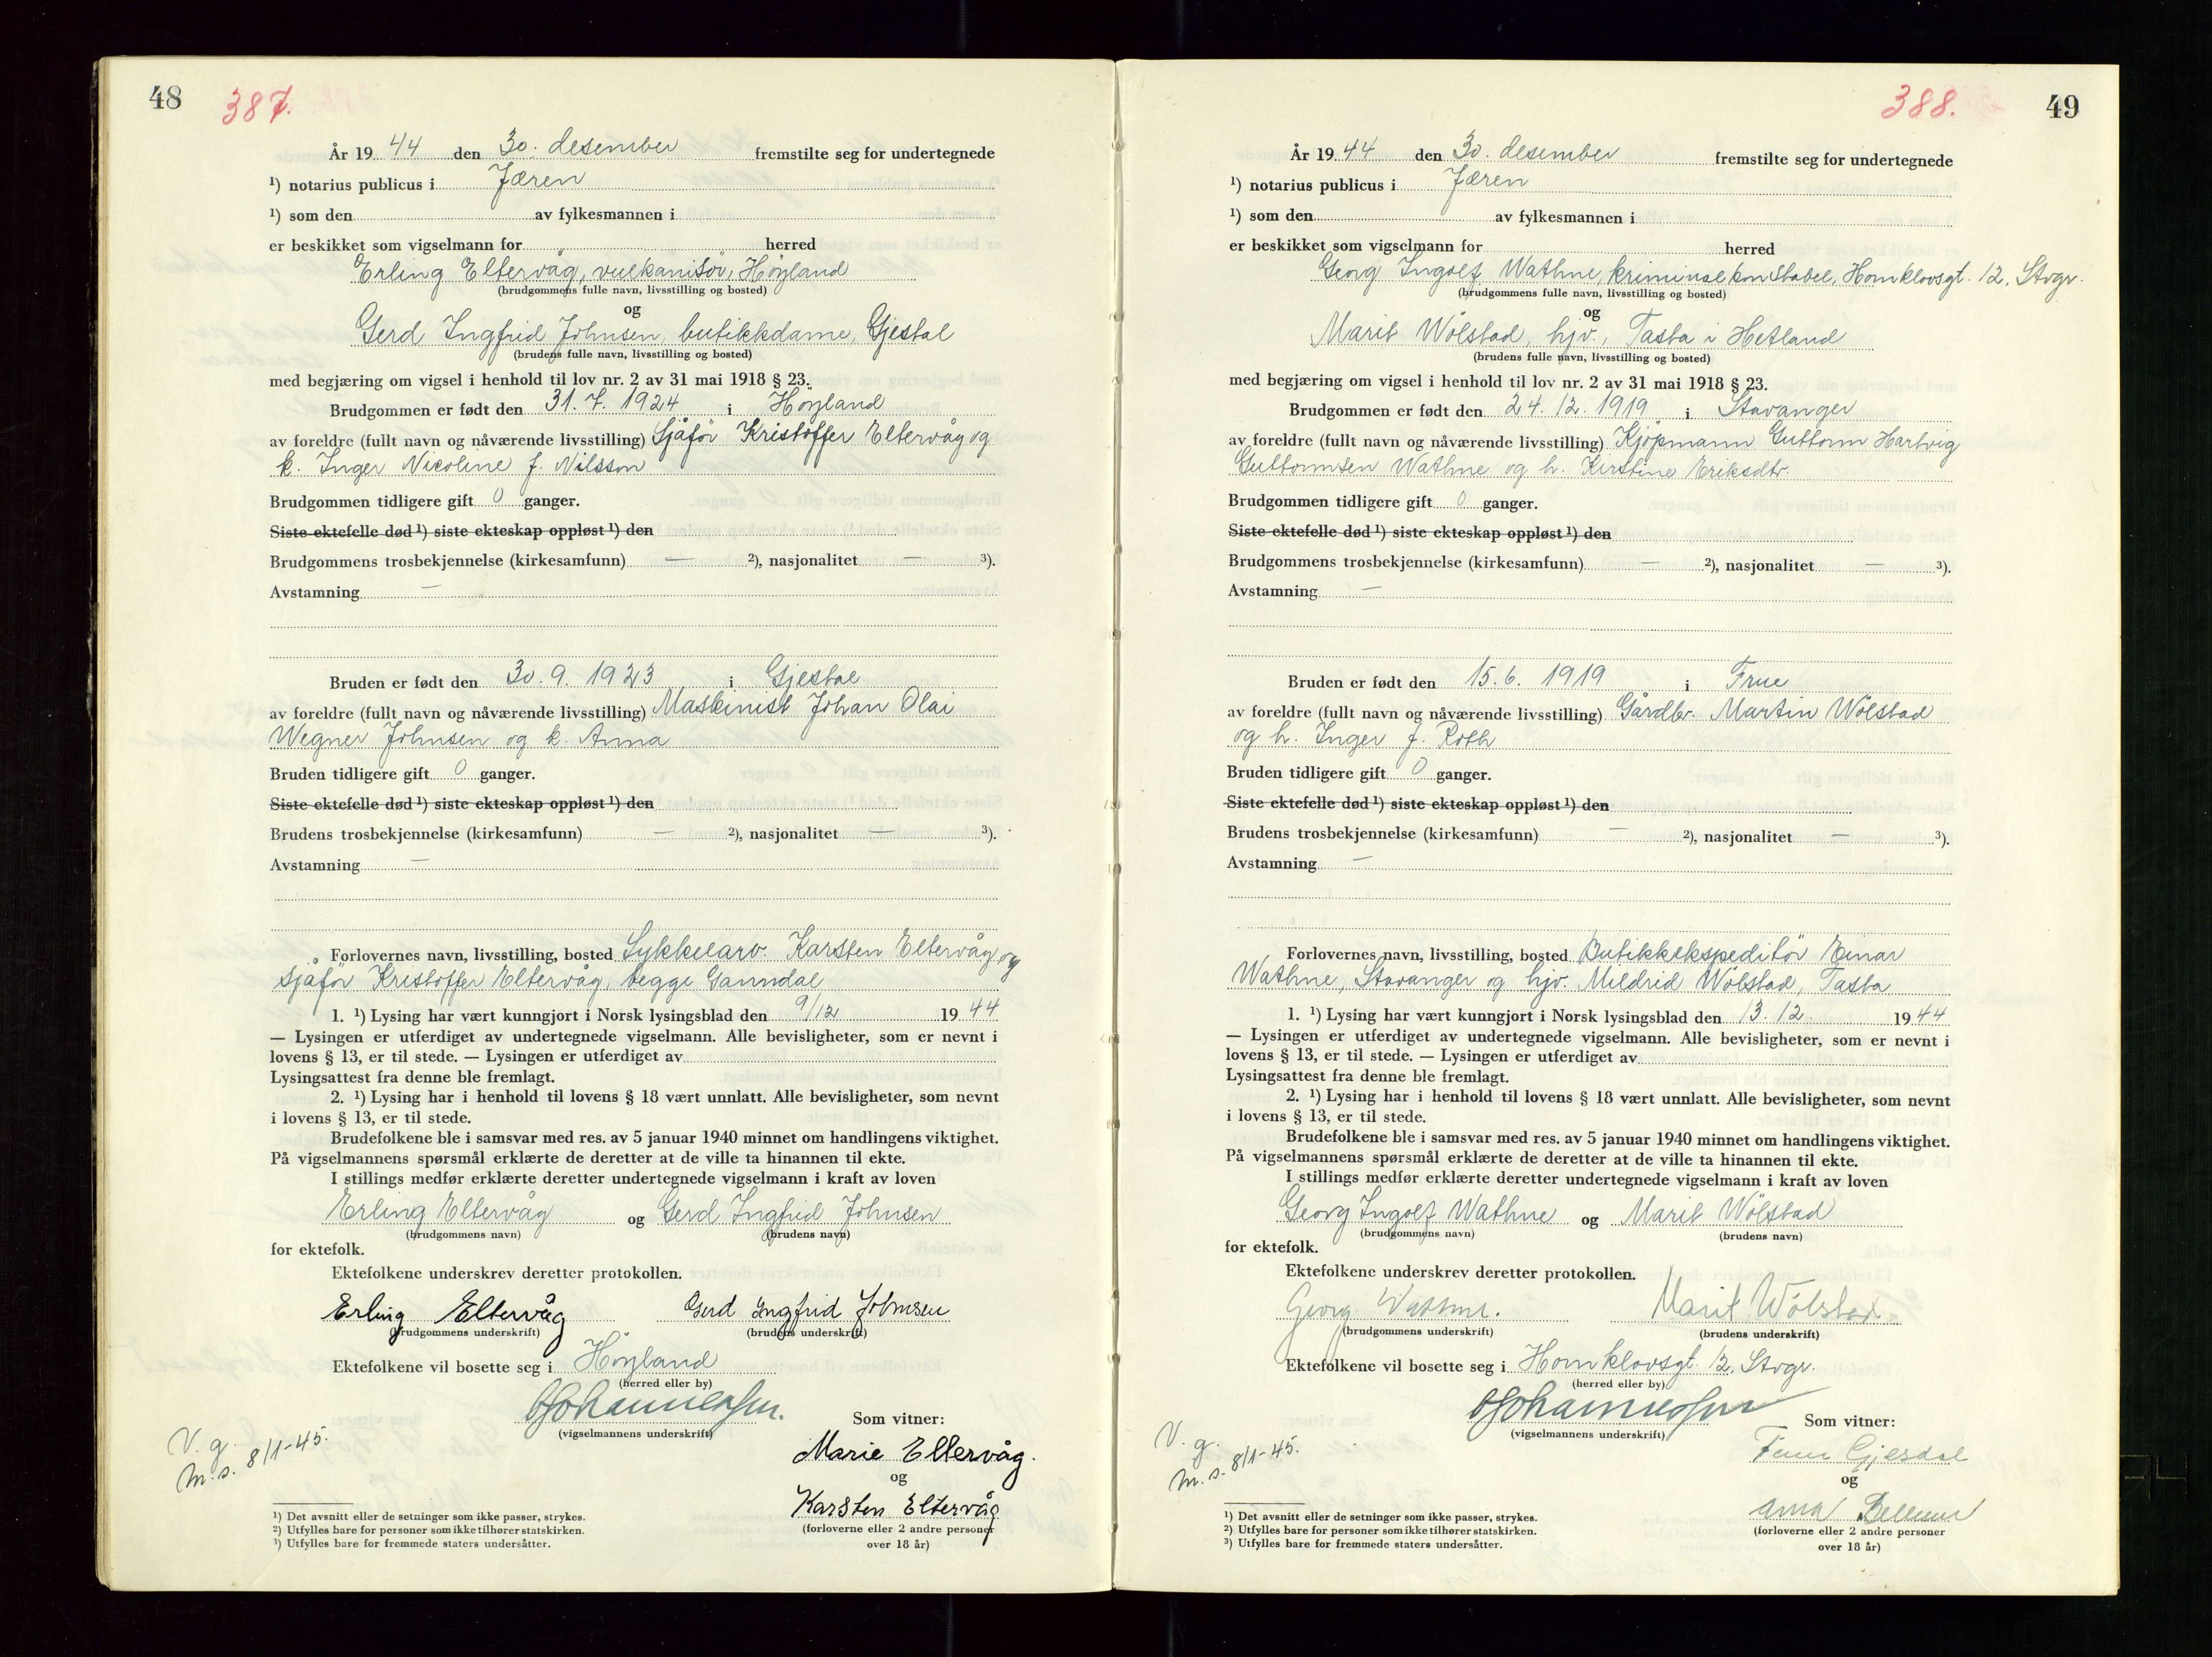 48 387.
År 19 44 den 30. desember fremstilte seg for undertegnede
¹) notarius publicus i Jæren
¹) som den av fylkesmannen i
er beskikket som vigselmann for herred
Erling Eltervåg, vulkanisör, Höyland
(brudgommens fulle navn, livsstilling og bosted)
og
Gerd Ingfrid Johnsen, butikkdame, Gjestal
(brudens fulle navn, livsstilling og bosted)
med begjæring om vigsel i henhold til lov nr. 2 av 31 mai 1918 § 23.
Brudgommen er født den 31. 7. 1924 i Höyland
av foreldre (fullt navn og nåværende livsstilling) Sjåför Kristoffer Eltervåg og
k. Inger Nicoline f. Nilsson
Brudgommen tidligere gift 0 ganger.
Siste ektefelle død ¹) siste ekteskap oppløst ¹) den
Brudgommens trosbekjennelse (kirkesamfunn) — ²), nasjonalitet — ³).
Avstamning —
Bruden er født den 30. 9. 1923 i Gjestal
av foreldre (fullt navn og nåværende livsstilling) Maskinist Johan Olai
Wegner Johnsen og k. Anna
Bruden tidligere gift 0 ganger.
Siste ektefelle død ¹) siste ekteskap oppløst ¹) den
Brudens trosbekjennelse (kirkesamfunn) — ²), nasjonalitet — ³).
Avstamning —
Forlovernes navn, livsstilling, bosted Sykkelarb. Karsten Eltervåg og
sjåför Kristoffer Eltervåg, begge Ganndal
1. ¹) Lysing har vært kunngjort i Norsk lysingsblad den 9/12 19 44
— Lysingen er utferdiget av undertegnede vigselmann. Alle bevisligheter, som er nevnt i
lovens § 13, er til stede. — Lysingen er utferdiget av
Lysingsattest fra denne ble fremlagt.
2. ¹) Lysing har i henhold til lovens § 18 vært unnlatt. Alle bevisligheter, som nevnt
i lovens § 13, er til stede.
Brudefolkene ble i samsvar med res. av 5 januar 1940 minnet om handlingens viktighet.
På vigselmannens spørsmål erklærte de deretter at de ville ta hinannen til ekte.
I stillings medfør erklærte deretter undertegnede vigselmann i kraft av loven
Erling Eltervåg og Gerd Ingfrid Johnsen
(brudgommens navn) (brudens navn)
for ektefolk.
Ektefolkene underskrev deretter protokollen.
Erling Eltervåg Gerd Ingfrid Johnsen
(brudgommens underskrift) (brudens underskrift)
Ektefolkene vil bosette seg i Höyland
(herred eller by)
Johannessen.
(vigselmannens underskrift)
Som vitner:
V. g.
m. s. 8/1-45.
Marie Eltervåg.
og
Karsten Eltervåg
(forloverne eller 2 andre personer
over 18 år)
¹) Det avsnitt eller de setninger som ikke passer, strykes.
²) Utfylles bare for personer som ikke tilhører statskirken.
³) Utfylles bare for fremmede staters undersåtter.
388. 49
År 19 44 den 30. desember fremstilte seg for undertegnede
¹) notarius publicus i Jæren
¹) som den av fylkesmannen i
er beskikket som vigselmann for herred
Georg Ingolf Wathne, kriminalkonstabel, Homklovsgt. 12, Stvgr.
(brudgommens fulle navn, livsstilling og bosted)
og
Marit Wölstad, hjv., Tasta i Hetland
(brudens fulle navn, livsstilling og bosted)
med begjæring om vigsel i henhold til lov nr. 2 av 31 mai 1918 § 23.
Brudgommen er født den 24. 12. 1919 i Stavanger
av foreldre (fullt navn og nåværende livsstilling) Kjöpmann Guttorm Hartvig
Guttormsen Wathne og h. Kirstine Eriksdtr.
Brudgommen tidligere gift 0 ganger.
Siste ektefelle død ¹) siste ekteskap oppløst ¹) den
Brudgommens trosbekjennelse (kirkesamfunn) — ²), nasjonalitet — ³).
Avstamning —
Bruden er født den 15. 6. 1919 i Frue
av foreldre (fullt navn og nåværende livsstilling) Gårdbr. Martin Wölstad
og h. Inger f. Roth
Bruden tidligere gift 0 ganger.
Siste ektefelle død ¹) siste ekteskap oppløst ¹) den
Brudens trosbekjennelse (kirkesamfunn) — ²), nasjonalitet — ³).
Avstamning —
Forlovernes navn, livsstilling, bosted Butikkekspeditör Einar
Wathne, Stavanger og hjv. Mildrid Wölstad, Tasta
1. ¹) Lysing har vært kunngjort i Norsk lysingsblad den 13. 12. 19 44
— Lysingen er utferdiget av undertegnede vigselmann. Alle bevisligheter, som er nevnt i
lovens § 13, er til stede. — Lysingen er utferdiget av
Lysingsattest fra denne ble fremlagt.
2. ¹) Lysing har i henhold til lovens § 18 vært unnlatt. Alle bevisligheter, som nevnt
i lovens § 13, er til stede.
Brudefolkene ble i samsvar med res. av 5 januar 1940 minnet om handlingens viktighet.
På vigselmannens spørsmål erklærte de deretter at de ville ta hinannen til ekte.
I stillings medfør erklærte deretter undertegnede vigselmann i kraft av loven
Georg Ingolf Wathne og Marit Wölstad
(brudgommens navn) (brudens navn)
for ektefolk.
Ektefolkene underskrev deretter protokollen.
Georg Wathne. Marit Wölstad
(brudgommens underskrift) (brudens underskrift)
Ektefolkene vil bosette seg i Homklovsgt. 12, Stvgr.
(herred eller by)
Johannessen
(vigselmannens underskrift)
Som vitner:
V. g.
m. s. 8/1-45.
Gjesdal
og
Anna
(forloverne eller 2 andre personer
over 18 år)
¹) Det avsnitt eller de setninger som ikke passer, strykes.
²) Utfylles bare for personer som ikke tilhører statskirken.
³) Utfylles bare for fremmede staters undersåtter.